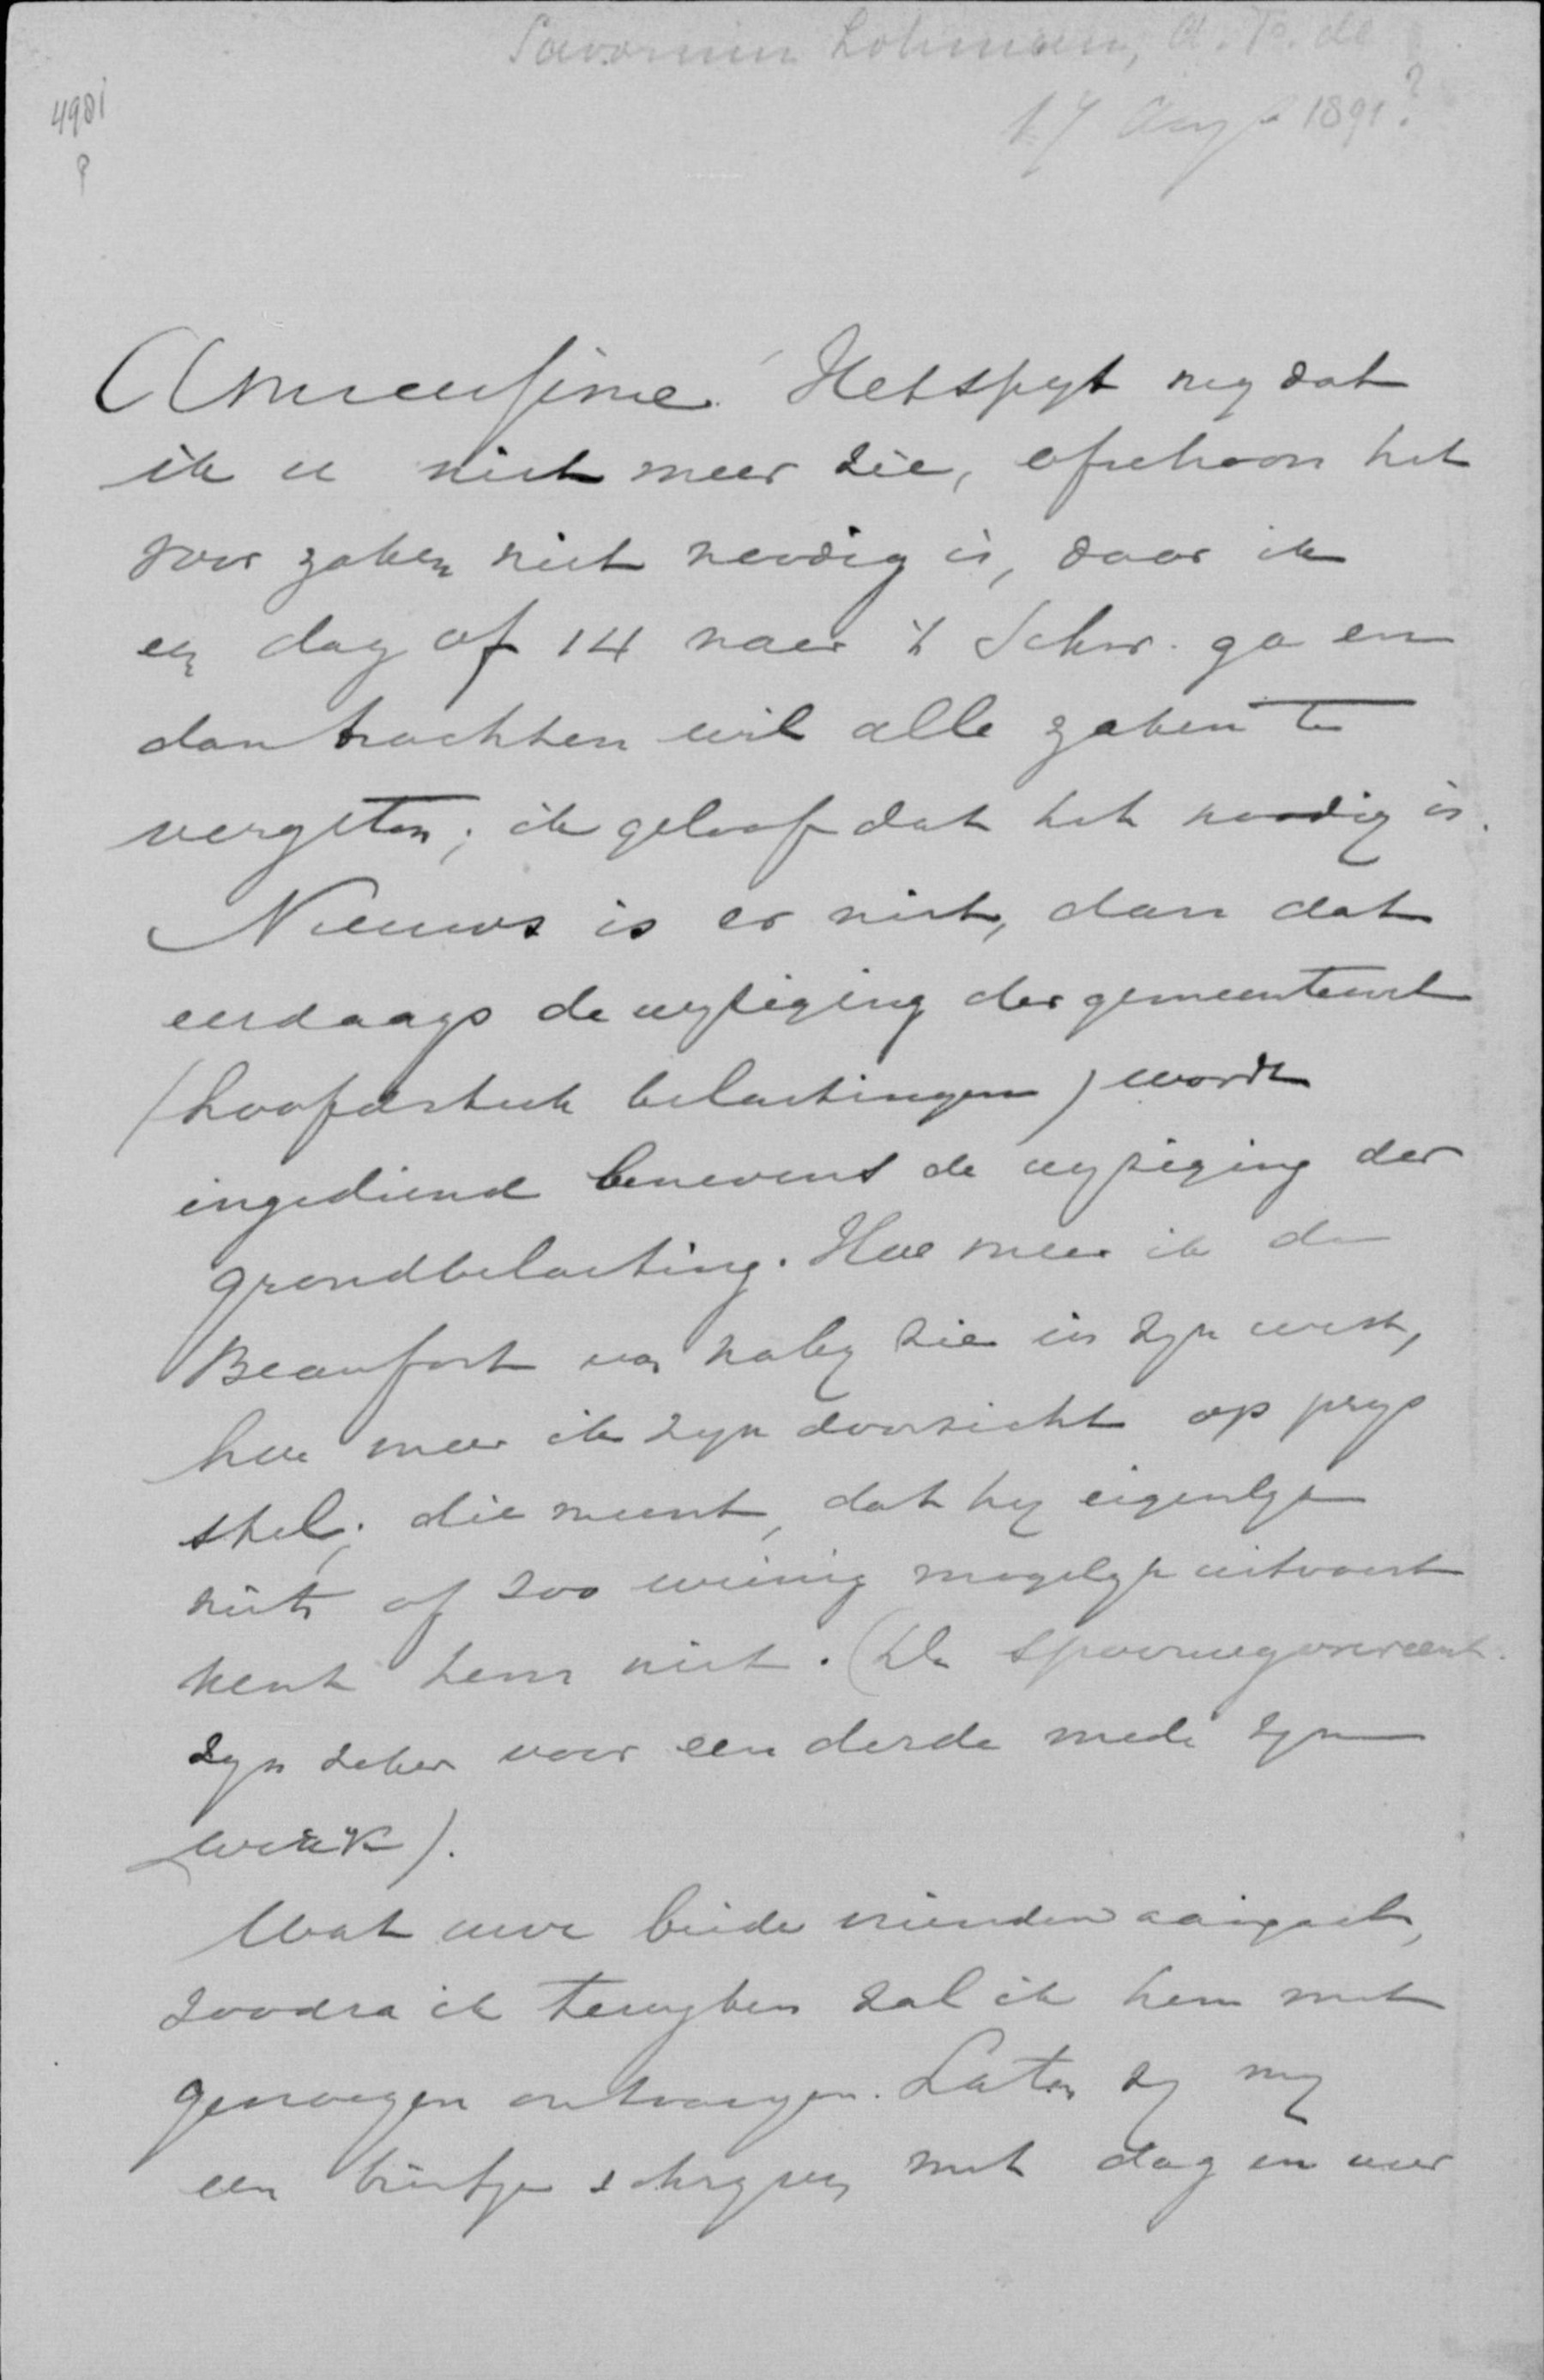 Savornin Lohman, A. F. de
17 Aug 1891?
4981
?
Amicissime. Het spijt mij dat
ik u niet meer zie, ofschoon het
voor zaken niet noodig is, daar ik
een dag of 14 naar 't Schw. ga en
dan trachten wil alle zaken te
vergeten; ik geloof dat het noodig is.
Nieuws is er niet, dan dat
eerdaags de wijziging der gemeentewet
(hoofdstuk belastingen) wordt
ingediend benevens de wijziging der
grondbelasting. Hoe meer ik de
Beaufort van nabij zie in zijn werk,
hoe meer ik zijn doorzicht op prijs
stel; die meent, dat hij eigenlijk
niets of zoo weinig mogelijk uitvoert
kent hem niet. (De spoorwegovereenk.
zijn zeker voor een derde mede zijn
werk).
Wat uwe beide vrienden aangaat,
zoodra ik terugben zal ik hen met
genoegen ontvangen. Laten zij mij
een briefje schrijven met dag en uur